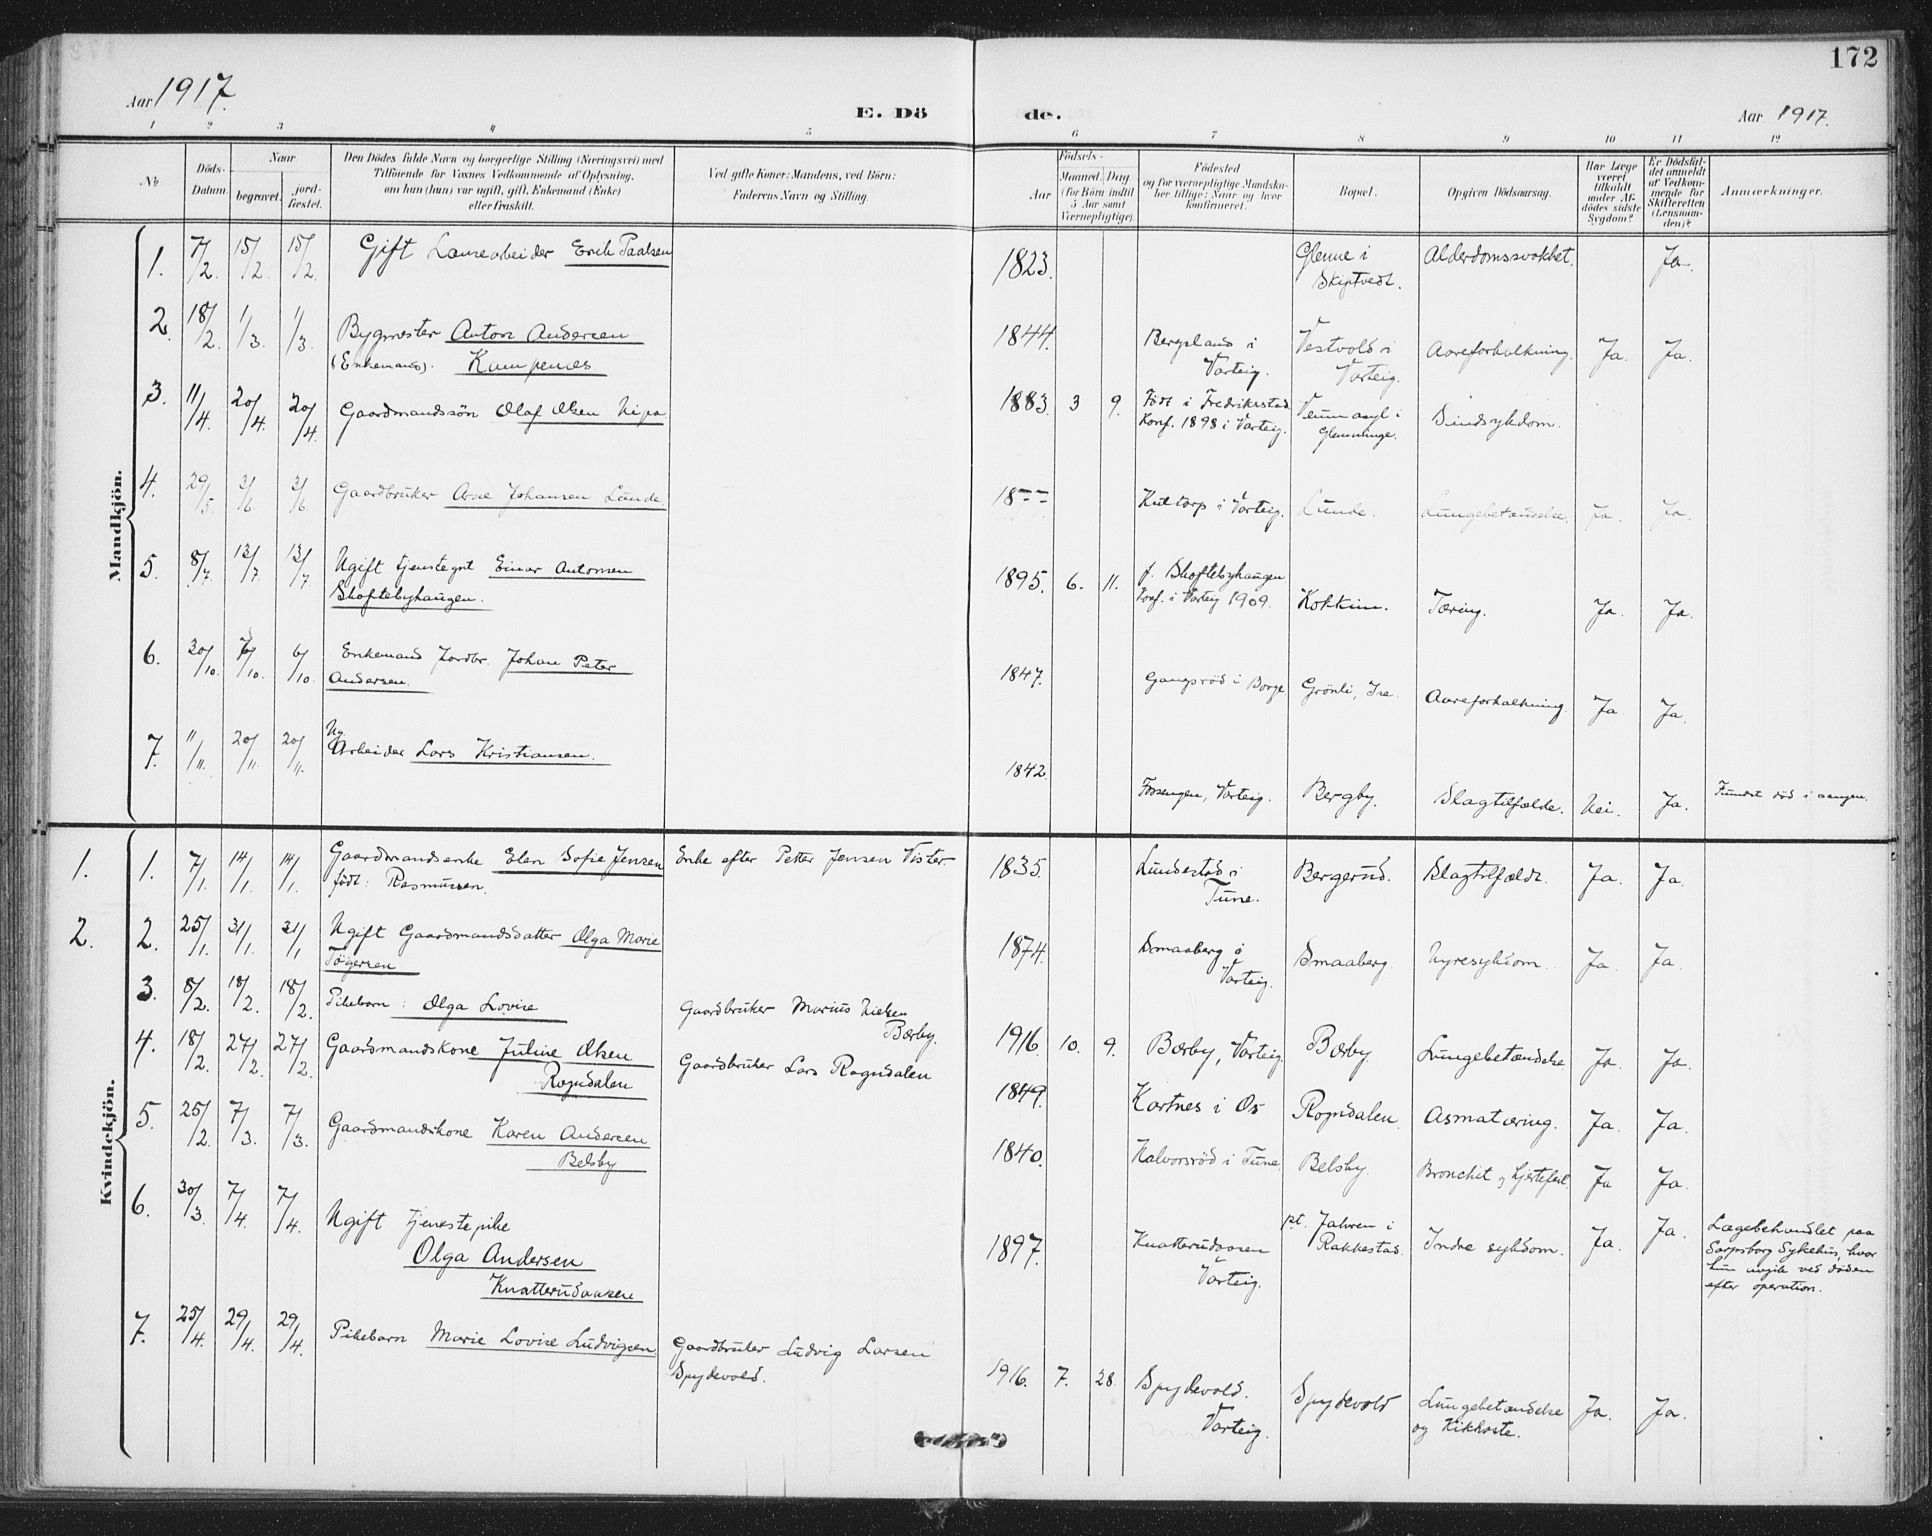 172
Aar 1917.
E. Dö de.
Aar 1917.
1 2 3 4 5 6 7 8 9 10 11 12
No
Döds-
Datum.
Naar
begravet.
jord-
fæstet.
Den Dödes fulde Navn og borgerlige Stilling (Næringsvei) med
Tilföiende for Voxnes Vedkommende af Oplysning,
om han (hun) var ugift, gift, Enkemand (Enke)
eller fraskilt.
Ved gifte Koner: Mandens, ved Börn:
Faderens Navn og Stilling.
Födsels-
Aar
Maaned. Dag
(for Börn indtil
5 Aar samt
Værnepligtige).
Födested
og for værnepligtige Mandska-
ber tillige: Naar og hvor
konfirmeret.
Bopæl.
Opgiven Dödsaarsag.
Har Læge
været
tilkaldt
under Af-
dödes sidste
Sygdom?
Er Dödsfal-
det anmeldt
af Vedkom-
mende for
Skifteretten
(Lensman-
den)?
Anmærkninger.
Mandkjön.
1. 7/2. 15/2. 15/2. Gift Lausearbeider Erik Paalsen 1823. Glenne i Alderdomssvakhet. Ja.
Skiptvedt.
2. 18/2. 1/3. 1/3. Bygmester Anton Andersen 1844. Bergsland i Vestvold i Aareforkalkning. Ja. Ja.
(Enkemand). Kampenes Varteig. Varteig.
3. 11/4. 20/4. 20/4. Gaardmandssön Olaf Olsen Nipa 1883. 3 9. Född i Fredriksstad Veum asyl i Sindsykdom.
Konf. 1898 i Varteig. Glemminge.
4. 29/5. 3/6. 3/6. Gaardbruker Arne Johansen Lunde 1877 Kultorp i Varteig. Lunde. Lungebetændelse. Ja. Ja.
5. 8/7. 13/7. 13/7. Ugift tjenstegut Einar Antonsen 1895. 6. 11. f. Skoftebyhaugen Kokkim. Tæring. Ja. Ja.
Skoftebyhaugen. konf. i Varteig 1909.
6. 30/10. 6/10. 6/10. Enkemand Jordbr. Johan Peter 1847. Gangsröd i Borge Grönli, Ise. Aareforkalkning. Ja. Ja.
Andersen.
7. 11/11. 20/11. 20/11. Ug. Arbeider Lars Kristiansen. 1842. Fossengen, Varteig. Bergby. Slagtilfælde. Nei. Ja. Fundet död i sengen.
Kvindekjön.
1. 1. 7/1. 14/1. 14/1. Gaardmandsenke Elen Sofie Jensen Enke efter Petter Jensen Vister 1835. Lundestad i Bergerud. Slagtilfælde. Ja. Ja.
født: Rasmussen. Tune.
2. 2. 25/1. 31/1. 31/1. Ugift Gaardmandsdatter Olga Marie 1874. Smaaberg i Smaaberg. Nyresykdom. Ja. Ja.
Tögersen Varteig.
3. 8/2. 18/2. 18/2. Pikebarn: Olga Lovise Gaardbruker Marius Nielsen 1916. 10. 9. Bærby, Varteig. Bærby. Lungebetændelse Ja. Ja.
Bærby.
4. 18/2. 27/2. 27/2. Gaardmandskone Juline Olsen Gaardbruker Lars Rogndalen 1849. Kartnes i Os Rogndalen. Asmatæring. Ja. Ja.
Rogndalen
5. 25/2. 7/3. 7/3. Gaardmandskone Karen Andersen 1840. Halvorsröd i Tune. Belsby. Bronchit og hjertefeil Ja Ja.
Belsby
6. 30/3. 7/4. 7/4. Ugift tjenestepike 1897. Knatterudaasen pt. Jahren i Indre sykdom. Ja. Ja. Lægebehandlet paa
Olga Andersen Varteig. Rakkestad. Sarpsborg Sykehus, hvor
Knatterudaasen hun avgik ved döden
efter operation.
7. 25/4. 29/4. 29/4. Pikebarn Marie Lovise Ludvigsen Gaardbruker Ludvig Larsen 1916. 7. 28. Spydevold. Spydevold Lungebetændelse Ja. Ja.
Spydevold. Varteig. og Kikhoste.